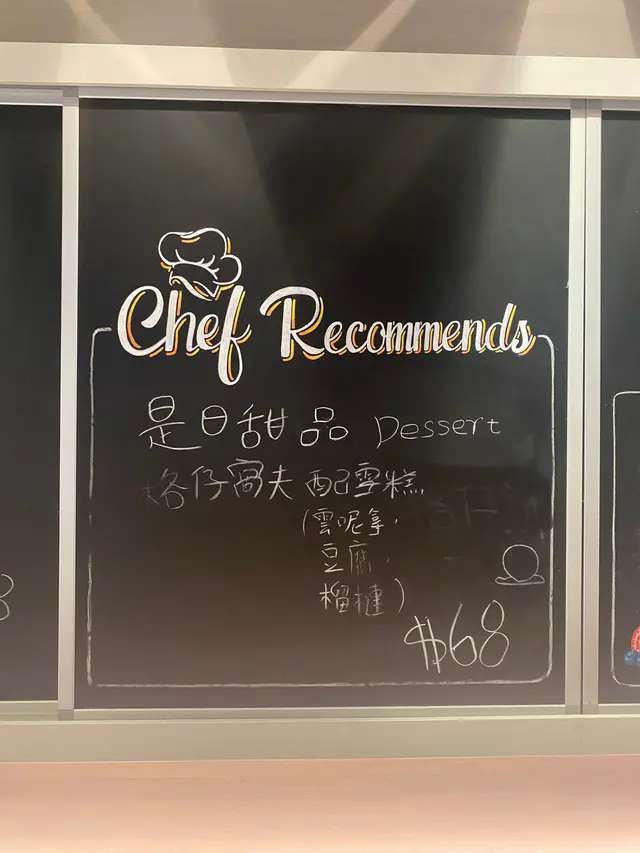 Chef Recommends
是日甜品 Dessert
格仔窩夫 配雪糕
(雲呢拿,
豆腐,
榴槤)
$68